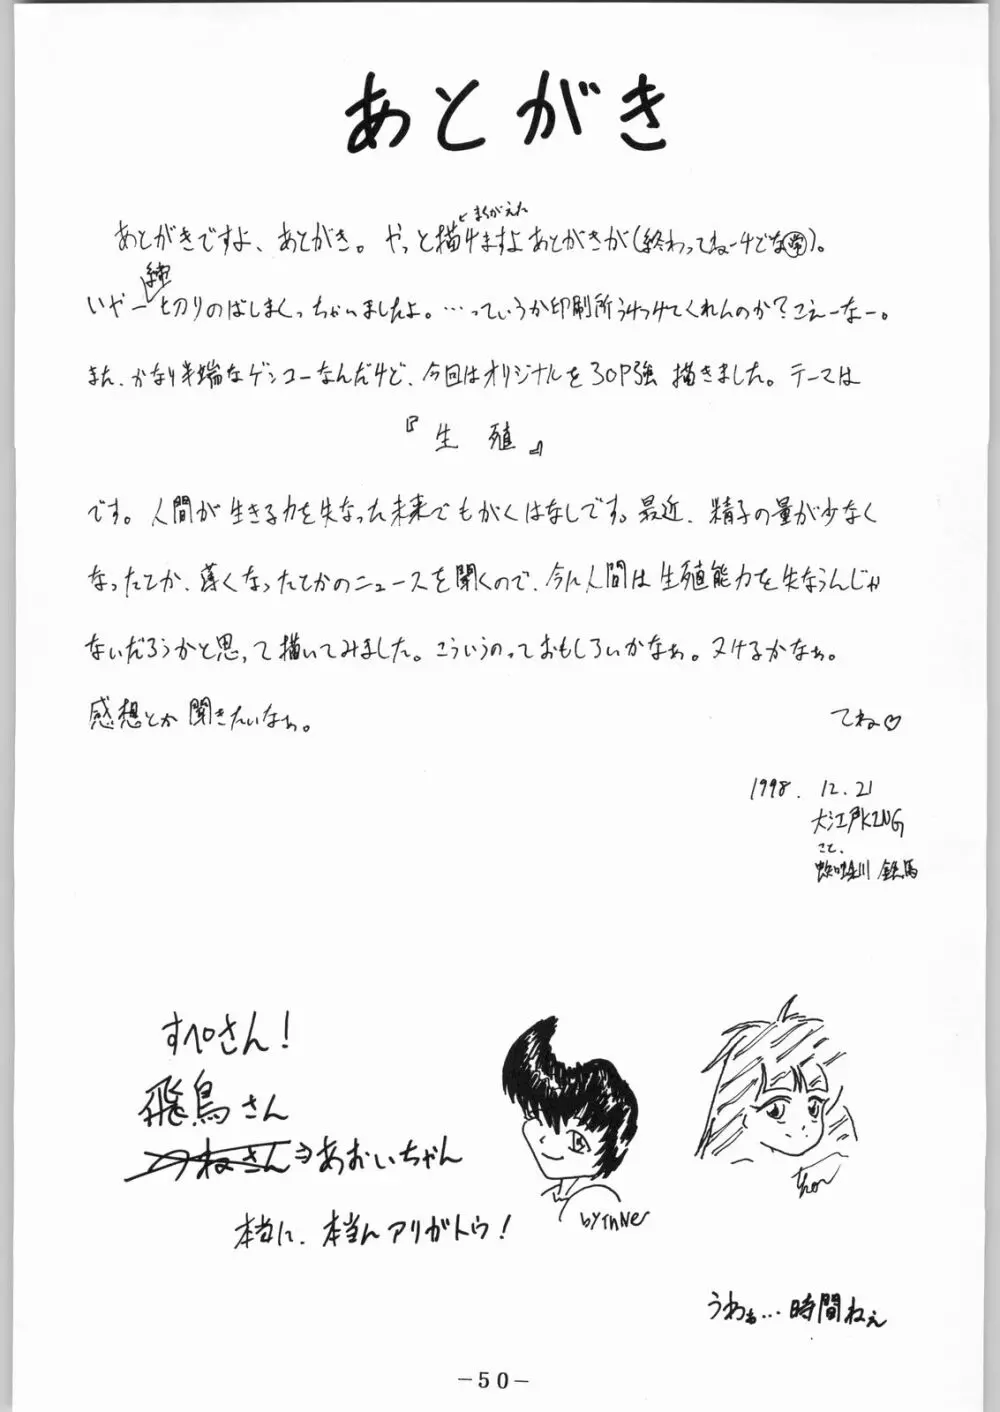 あとがき
まちがえた
あとがきですよ、あとがき。やっと描けますよあとがきが(終わってねーけどな笑)。
いやー〆切りのばしまくっちゃいましたよ。…っていうか印刷所うけつけてくれんのか?こえーなー。
また、かなり半端なゲンコーなんだけど、今回はオリジナルを30P強 描きました。テーマは
『生 殖』
です。人間が生きる力を失なった未来でもがくはなしです。最近、精子の量が少なく
なったとか、薄くなったとかのニュースを聞くので、今に人間は生殖能力を失なうんじゃ
ないだろうかと思って描いてみました。こういうのっておもしろいかなぁ。ヌけるかなぁ。
感想とか聞きたいなぁ。
てね♡
1998. 12. 21
大江戸KING
こと、
川 鉄馬
すぺさん!
飛鳥さん
つねさん⇒あおいちゃん
本当に、本当んアリガトウ!
by INNER
うわぁ…時間ねぇ
-50-